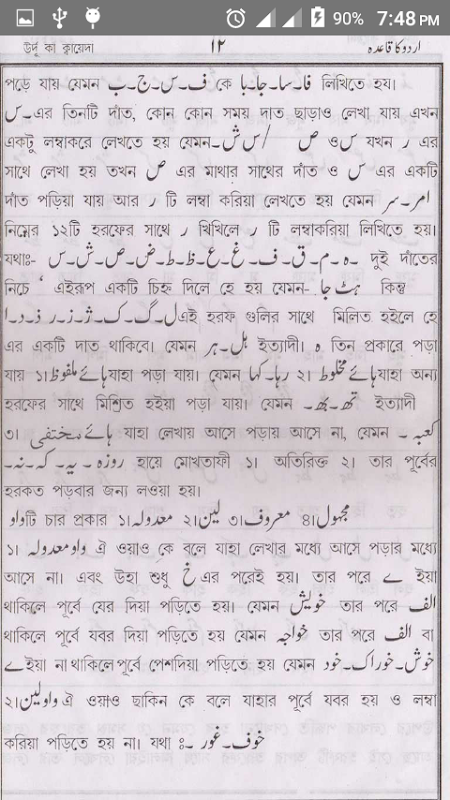 90% 7:48 PM
উর্দূ কা ক্বায়েদা ۱۲ اردو کا قاعدہ
পড়ে যায় যেমন ف۔س۔ج۔ب কে فا۔سا۔جا۔با লিখিতে হয।
س۔ এর তিনটি দাঁত, কোন কোন সময় দাত ছাড়াও লেখা যায় এখন
একটু লম্বাকরে লেখতে হয় যেমন۔س ش/ ص ওس যখন ر এর
সাথে লেখা হয় তখন ص এর মাথার সাথের দাঁত ও س এর একটি
দাঁত পড়িয়া যায় আর ر টি লম্বা করিয়া লেখতে হয় যেমন امر۔سر
নিম্নের ১২টি হরফের সাথে ر খিখিলে ر টি লম্বাকরিয়া লিখিতে হয়।
যথাঃ- ہ۔م۔ق۔ف۔غ۔ع۔ظ۔ط۔ض۔ص۔ش۔س দুই দাঁতের
নিচে ‘ এইরূপ একটি চিহ্ন দিলে হে হয় যেমন- ہٹ جا কিন্তু
ل۔گ۔ک۔ژ۔ز۔ر ذ۔د۔اএই হরফ গুলির সাথে মিলিত হইলে হে
এর একটি দাত থাকিবে। যেমন ہل۔ہر ইত্যাদী। ہ তিন প্রকারে পড়া
যায় ১।ہائے ملفوظযাহা পড়া যায়। যেমন رہا۔کہا ২। ہائے مخلوطযাহা অন্য
হরফের সাথে মিশ্রিত হইয়া পড়া যায়। যেমন تھ۔بھ۔ ইত্যাদী
৩। ہائے مختفی যাহা লেখায় আসে পড়ায় আসে না, যেমন کعبہ۔
روزہ۔یہ۔کہ۔نہ۔ হায়ে মোখতাফী ১। অতিরিক্ত ২। তার পূর্বের
হরকত পড়বার জন্য লওয়া হয়।
واوটি চার প্রকার ১।معدولہ ২।لین ৩।معروف ৪।مجہول
১। واو معدولہ ঐ ওয়াও কে বলে যাহা লেখার মধ্যে আসে পড়ার মধ্যে
আসে না। এবং উহা শুধু خ এর পরেই হয়। তার পরে ے ইয়া
থাকিলে পূর্বে যের দিয়া পড়িতে হয়। যেমন خویش তার পরে الف
থাকিলে পূর্বে যবর দিয়া পড়িতে হয় যেমন خواجہ তার পরে الف বা
ےইয়া না থাকিলে পূর্বে পেশদিয়া পড়িতে হয় যেমন خوش۔خوراک۔خود
২।واو لین ঐ ওয়াও ছাকিন কে বলে যাহার পূর্বে যবর হয় ও লম্বা
করিয়া পড়িতে হয় না। যথা ঃ۔ خوف۔غور